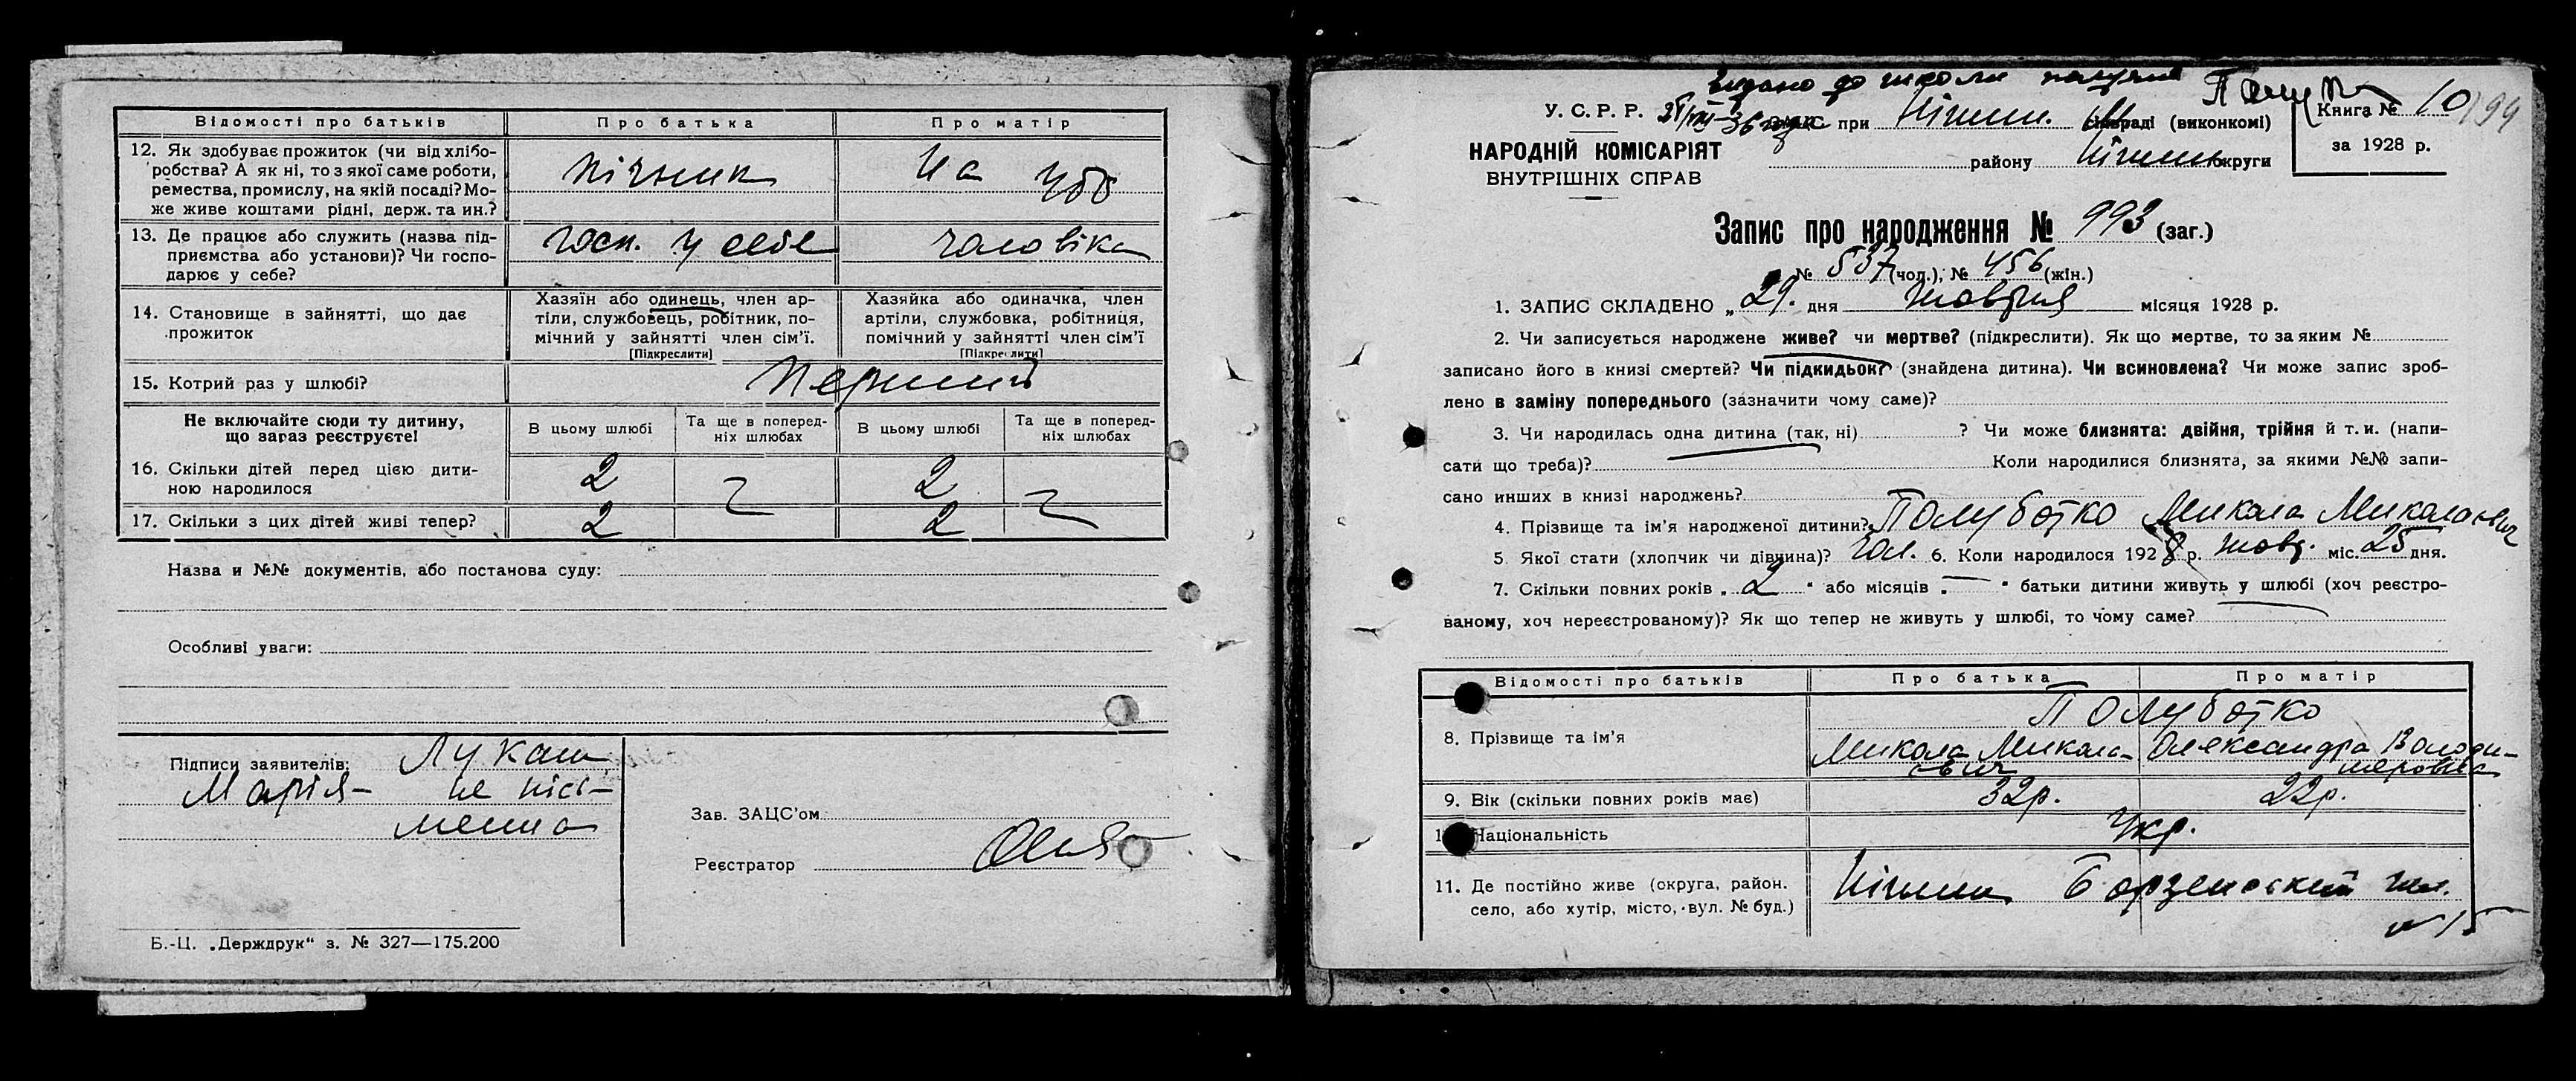 Відомості про батьків
Про батька
Про матір
12. Як здобуває прожиток (чи від хлібо-
робства? А як ні, то з якої саме роботи,
ремества, промислу, на якій посаді? Мо-
же живе коштами рідні, держ. та ин.?
пічник
На
утр
13. Де працює або служить (назва під-
приємства або установи)? Чи госпо-
дарює у себе?
госп. у себе
чоловіка
14. Становище в зайнятті, що дає
прожиток
Хазяїн або одинець, член ар-
тіли, службовець, робітник, по-
мічний у зайнятті член сім'ї.
[Підкреслити]
Хазяйка або одиначка, член
артіли, службовка, робітниця,
помічний у зайнятті член сім'ї
[Підкреслити]
15. Котрий раз у шлюбі?
Перший
Не включайте сюди ту дитину,
що зараз реєструєте!
В цьому шлюбі
Та ще в поперед-
ніх шлюбах
В цьому шлюбі
Та ще в поперед-
ніх шлюбах
16. Скільки дітей перед цією дити-
ною народилося
2
2
17. Скільки з цих дітей живі тепер?
2
2
Назва и №№ документів, або постанова суду:
Особливі уваги:
Підписи заявителів: Лукаш
Марія - не пісь-
менна
Зав. ЗАЦС'ом
Реєстратор
Б.-Ц. „Держдрук" з. № 327—175.200
видано до школи
У. С. Р. Р.
НАРОДНІЙ КОМІСАРІЯТ
ВНУТРІШНІХ СПРАВ
ЗАЦС при Ніжин. М сільраді (виконкомі)
району Ніжинь округи
Книга № 10
за 1928 р.
194
Запис про народження № 993 (заг.)
№ 537 (чол.); № 456 (жін.)
1. ЗАПИС СКЛАДЕНО „29. дня жовтня місяця 1928 р.
2. Чи записується народжене живе? чи мертве? (підкреслити). Як що мертве, то за яким №
записано його в книзі смертей? Чи підкидьок? (знайдена дитина). Чи всиновлена? Чи може запис зроб-
лено в заміну попереднього (зазначити чому саме)?
3. Чи народилась одна дитина (так, ні) ? Чи може близнята: двійня, трійня й т. и. (напи-
сати що треба)? Коли народилися близнята, за якими №№ запи-
сано инших в книзі народжень?
4. Прізвище та ім'я народженої дитини? Полуботко Микола Миколаевич
5 Якої стати (хлопчик чи дівчина)? Чол. 6. Коли народилося 1928 р. жовт. міс. 25 дня.
7. Скільки повних років „ 2 " або місяців „ — " батьки дитини живуть у шлюбі (хоч реєстро-
ваному, хоч нереєстрованому)? Як що тепер не живуть у шлюбі, то чому саме?
Відомості про батьків
Про батька
Про матір
8. Прізвище та ім'я
Полуботко
Микола Микола-
евич
Олександра Володи-
мировна
9. Вік (скільки повних років має)
32р.
22р.
Національність
Укр.
11. Де постійно живе (округа, район.
село, або хутір, місто, вул. № буд.)
Ніжин Борзенский шл.
№ 15